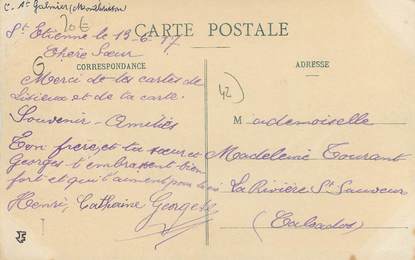 C. St Galmier (Montbrison
20€
CARTE POSTALE
St Etienne le 13-6-
Chère Sœur
CORRESPONDANCE
ADRESSE
Merci de les cartes de
Lisieux et de ta carte.
Souvenir - Amitiés
42
Ton frère, et ta sœur et
Georges t'embrassent bien
fort et qui t'aiment pour la vie
Henri, Cathaine Georges
Mademoiselle
Madeleine Tourant
La Rivière St Sauveur
(Calvados)